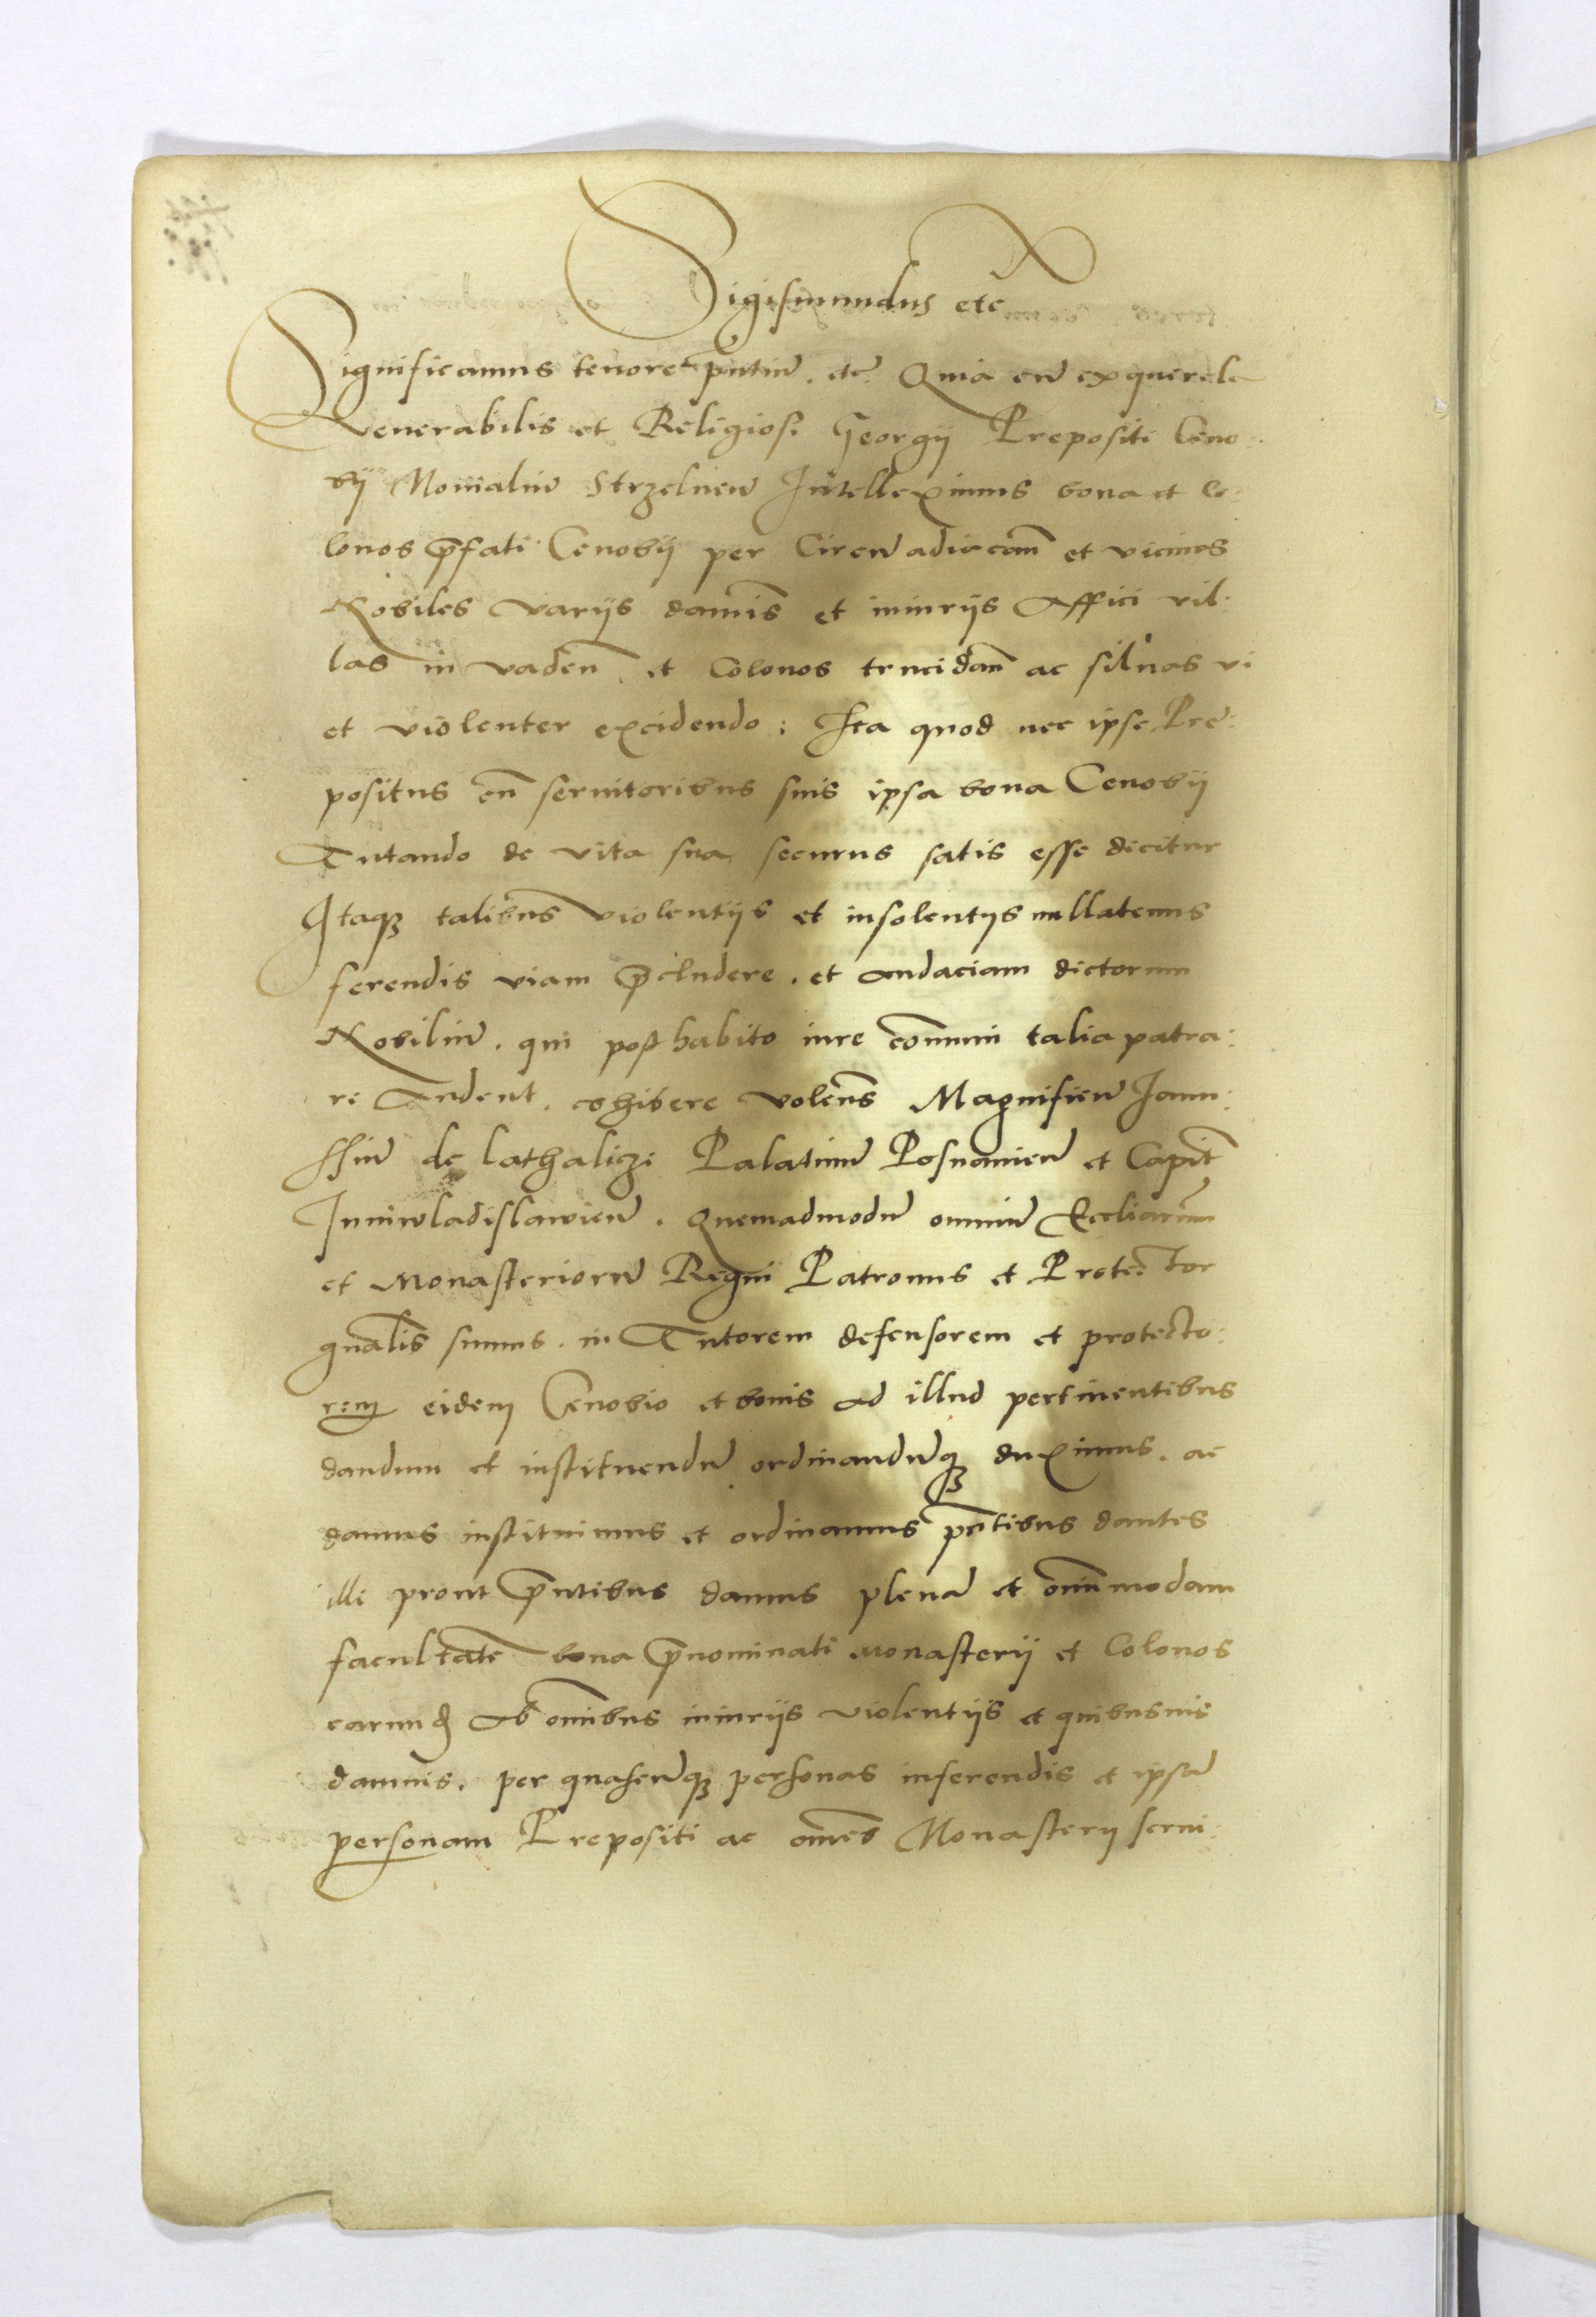 Sigismundus etc
Significamus tenore pñtiũ. etc̃. Quia cũ ex querela
Venerabilis et Religiosi Georgij Prepositi Ceno:
bij Monialiũ Strzelneñ Intelleximus bona et Co:
lonos p̃fati Cenobij per Circũ adiaceñ et vicinos
Nobiles varijs damnis et iniurijs Affici vil:
las in vadeñ. et Colonos trucidañ ac siluas vi
et violenter excidendo: Ita quod nec ipse Pre:
positus cũ seruitoribus suis ipsa bona Cenobij
Tutando de vita sua securus satis esse dicitur
Itaq₃ talibus violentijs et insolentijs nullatenus
ferendis viam p̃cludere. et audaciam dictorum
Nobiliũ. qui post habito iure com̃uni talia patra:
re Audent. cohibere volen̄s Magnificũ Ianu:
ssiũ de Lathaliczi Palatinũ Posnanieñ et Capit̃
Iuniwladislawieñ. Quemadmodũ omniũ Eccliarum̃
et Monasteriorũ Regni Patronus et Protector
gñalis sumus. in Tutorem defensorem et protecto:
rem eidem Cenobio et bonis ad illud pertinentibus
dandum et instituendũ ordinandũq₃ duximus. ac
damus instituimus et ordinamus pñtibus dantes
illi prout p̃ntibus damus plenã et om̃nimodam
facultatẽ bona p̃nominati Monasterij et Colonos
earund̃ ab om̃ibus iniurijs violentijs et quibusuis
damnis. per quascũq₃ personas inferendis et ipsã
personam Prepositi ac om̃es Monasterij serui: